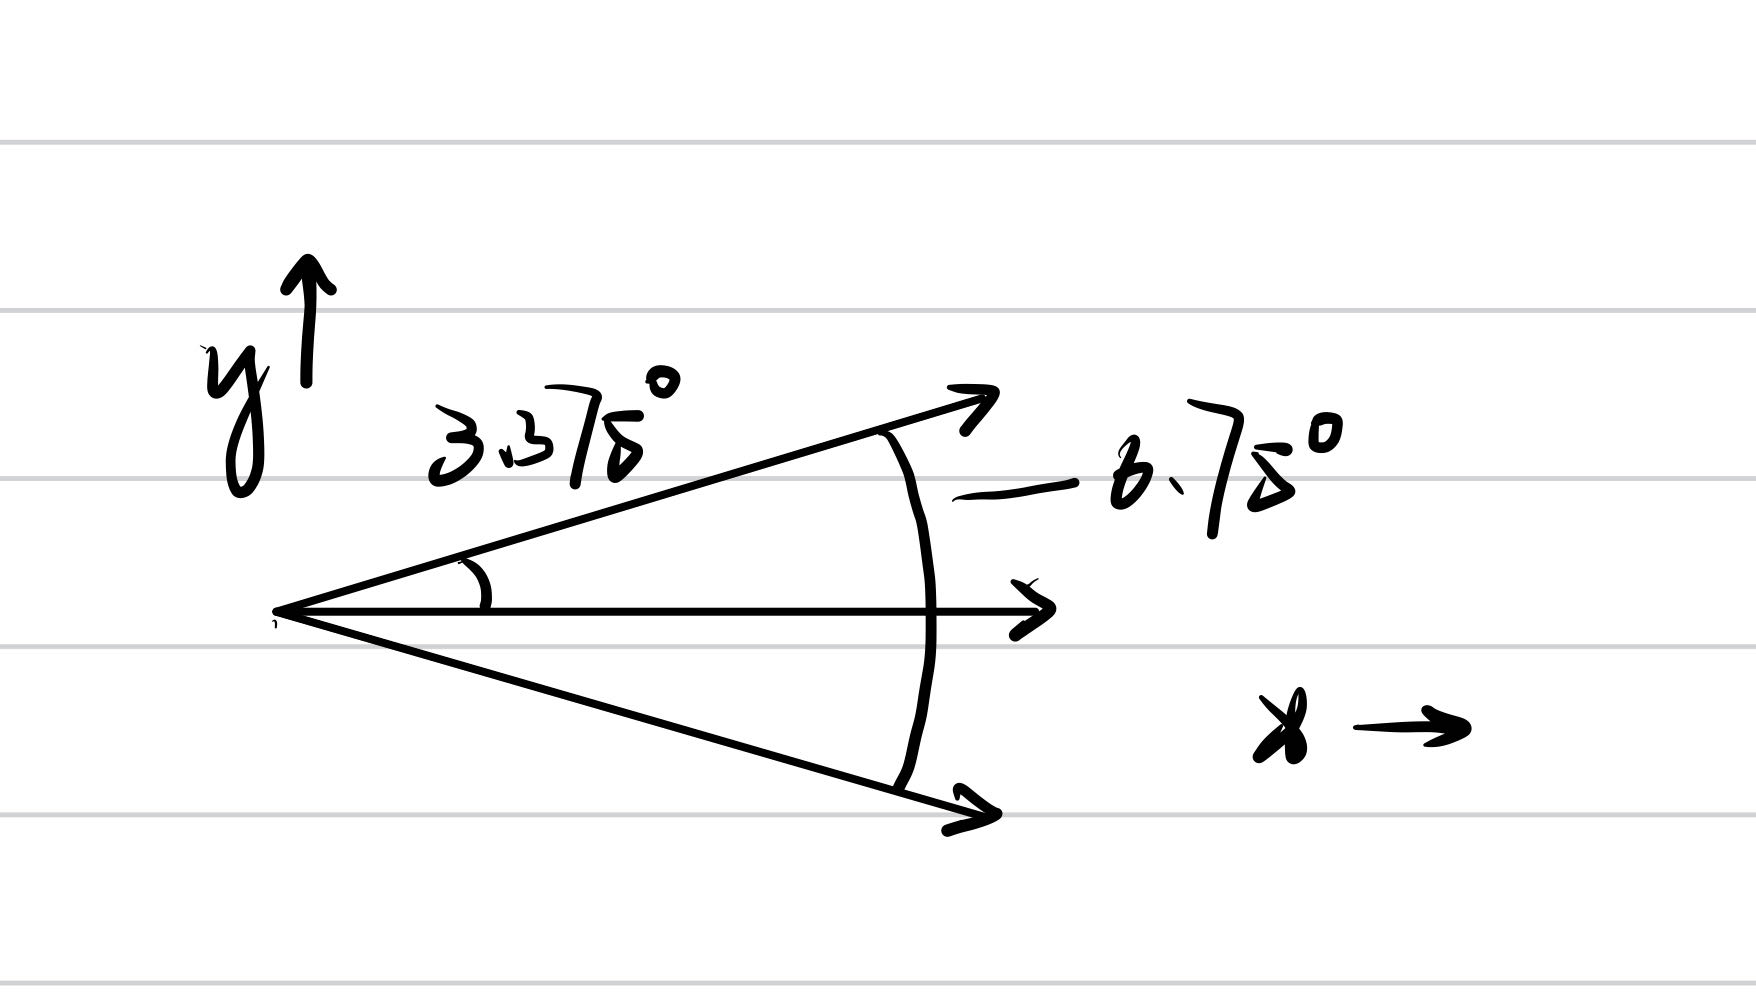 y
3.375°
6.75°
x